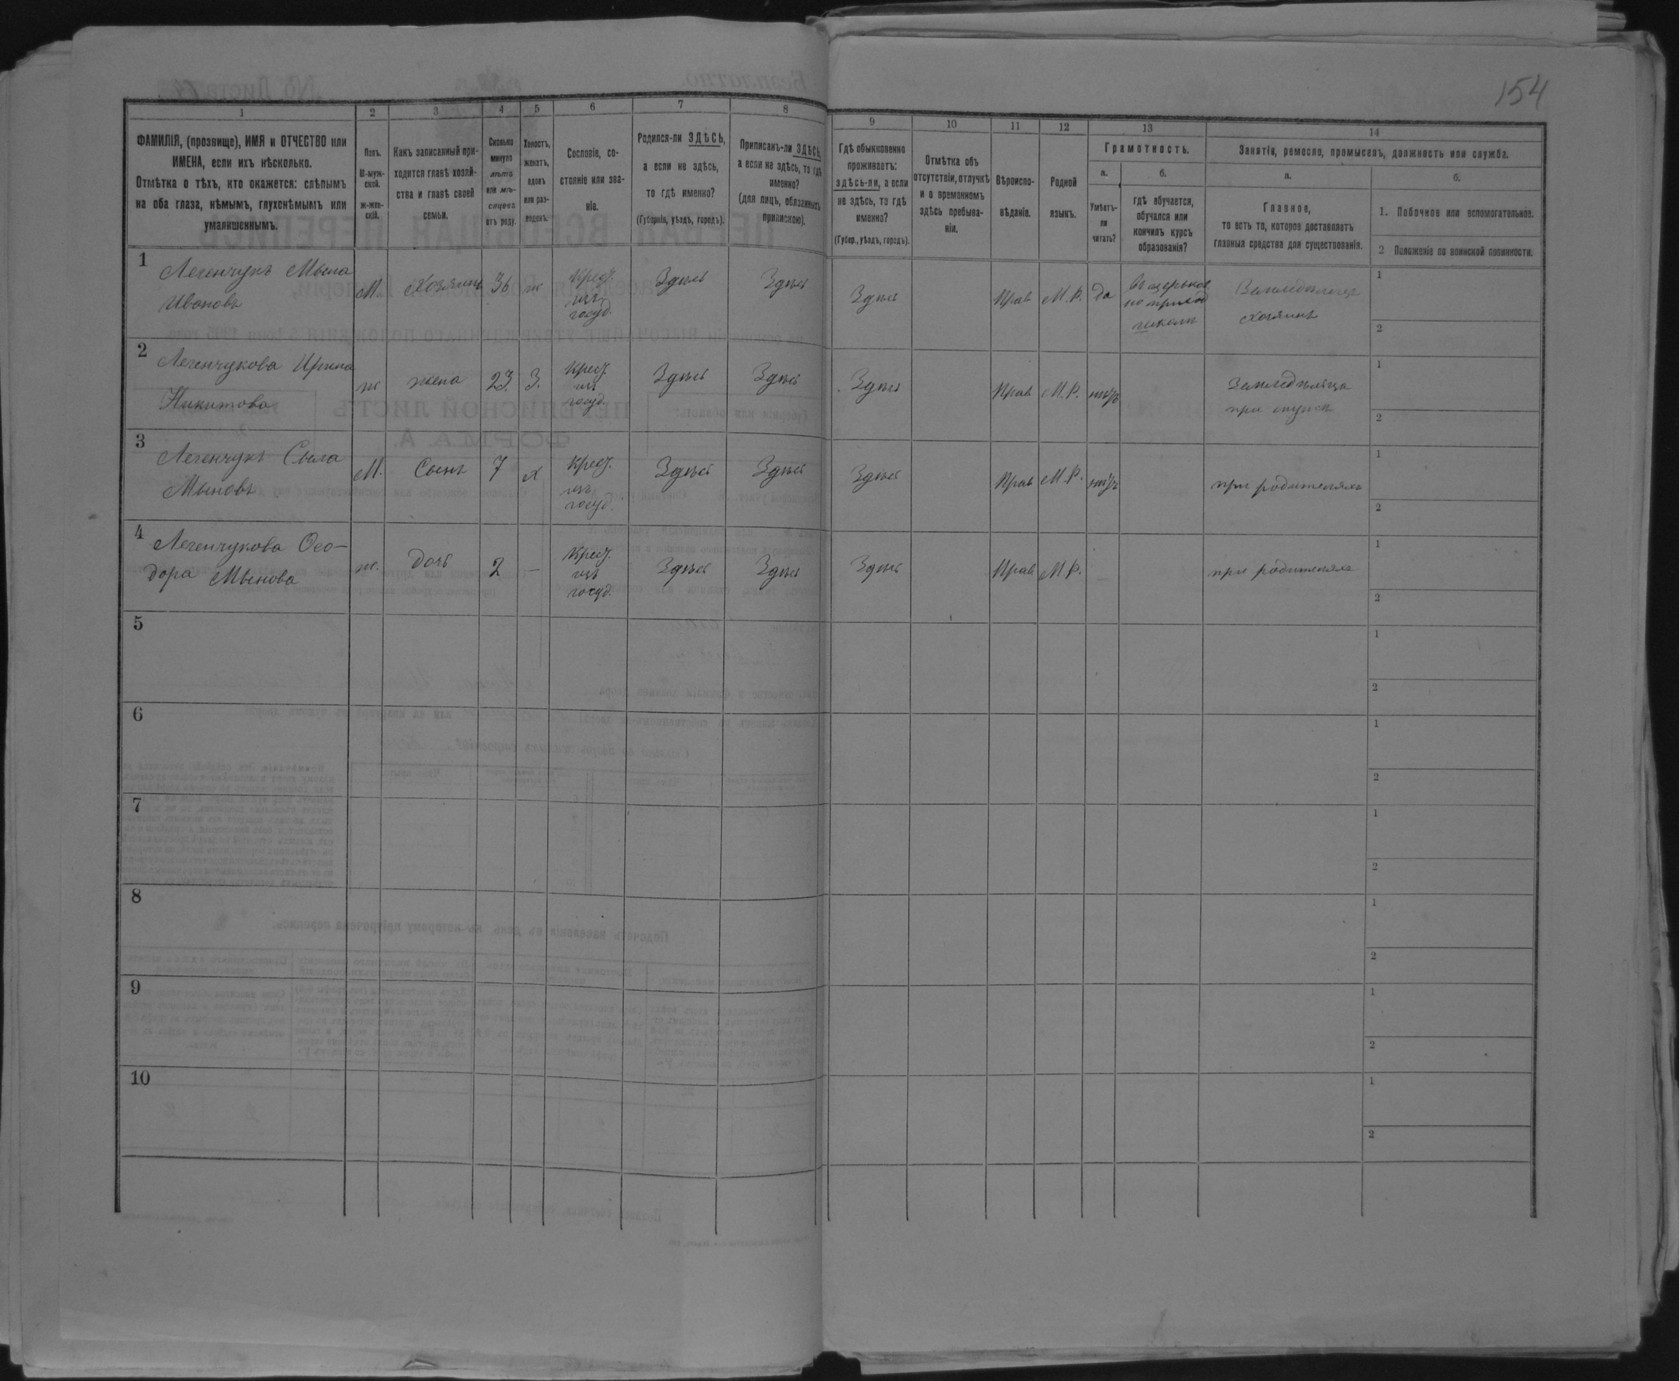 154
1
2
3
4
5
6
7
8
9
10
11
12
13
14
ФАМИЛІЯ, (прозвище), ИМЯ и ОТЧЕСТВО или
ИМЕНА, если ихъ нѣсколько.
Отмѣтка о тѣхъ, кто окажется: слѣпымъ
на оба глаза, нѣмымъ, глухонѣмымъ или
умалишеннымъ.
Полъ.
М-муж-
ской.
ж-жен-
скій.
Какъ записанный при-
ходится главѣ хозяй-
ства и главѣ своей
семьи.
Сколько
минуло
лѣтъ
или мѣ-
сяцевъ
отъ роду.
Холостъ,
женатъ,
вдовъ
или раз-
веденъ.
Сословіе, со-
стояніе или зва-
ніе.
Родился-ли ЗДѢСЬ,
а если не здѣсь,
то гдѣ именно?
(Губернія, уѣздъ, городъ).
Приписанъ-ли ЗДѢСЬ,
а если не здѣсь, то гдѣ
именно?
(для лицъ, обязанныхъ
припискою).
Гдѣ обыкновенно
проживаетъ:
здѣсь-ли, а если
не здѣсь, то гдѣ
именно?
(Губер., уѣздъ, городъ).
Отмѣтка объ
отсутствіи, отлучкѣ
и о временномъ
здѣсь пребыва-
ніи.
Вѣроиспо-
вѣданіе.
Родной
языкъ.
Грамотность.
а.
Умѣетъ-
ли
читать?
б.
гдѣ обучается,
обучался или
кончилъ курсъ
образованія?
Занятіе, ремесло, промыселъ, должность или служба.
а.
Главное,
то есть то, которое доставляетъ
главныя средства для существованія.
б.
1. Побочное или вспомогательное.
2 Положеніе по воинской повинности.
1
Легенчукъ Мына
Ивановъ
М.
Хозяинъ
36
ж
Крест.
изъ
госуд.
Здѣсь
Здѣсь
Здѣсь
Прав
М.Р.
да
школи
Земледѣлецъ
хозяинъ
1
2
2
Легенчукова Ирина
Никитова
ж
жена
23
З.
Крест.
изъ
госуд.
Здѣсь
Здѣсь
Здѣсь
Прав
М.Р.
нѣтъ
при
1
2
3
Легенчукъ Сыла
Мыновъ
М.
Сынъ
7
х
Крест.
изъ
госуд.
Здѣсь
Здѣсь
Здѣсь
Прав
М.Р.
нѣтъ
при родителяхъ
1
2
4
Легенчукова Ѳео-
дора Мынова
ж.
дочь
2
—
Крест.
изъ
госуд.
Здѣсь
Здѣсь
Здѣсь
Прав
М.Р.
при родителяхъ
1
2
5
1
2
6
1
2
7
1
2
8
1
2
9
1
2
10
1
2